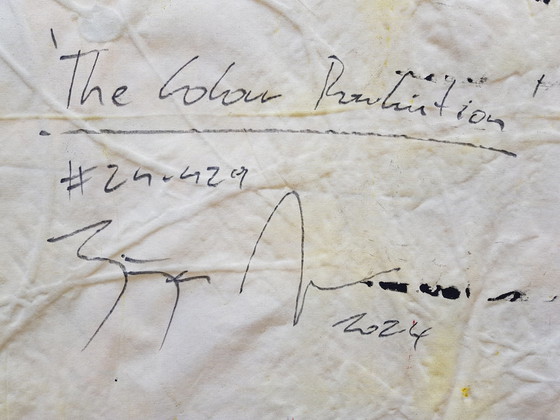 'The Colour Revolution'
#24-429
2024